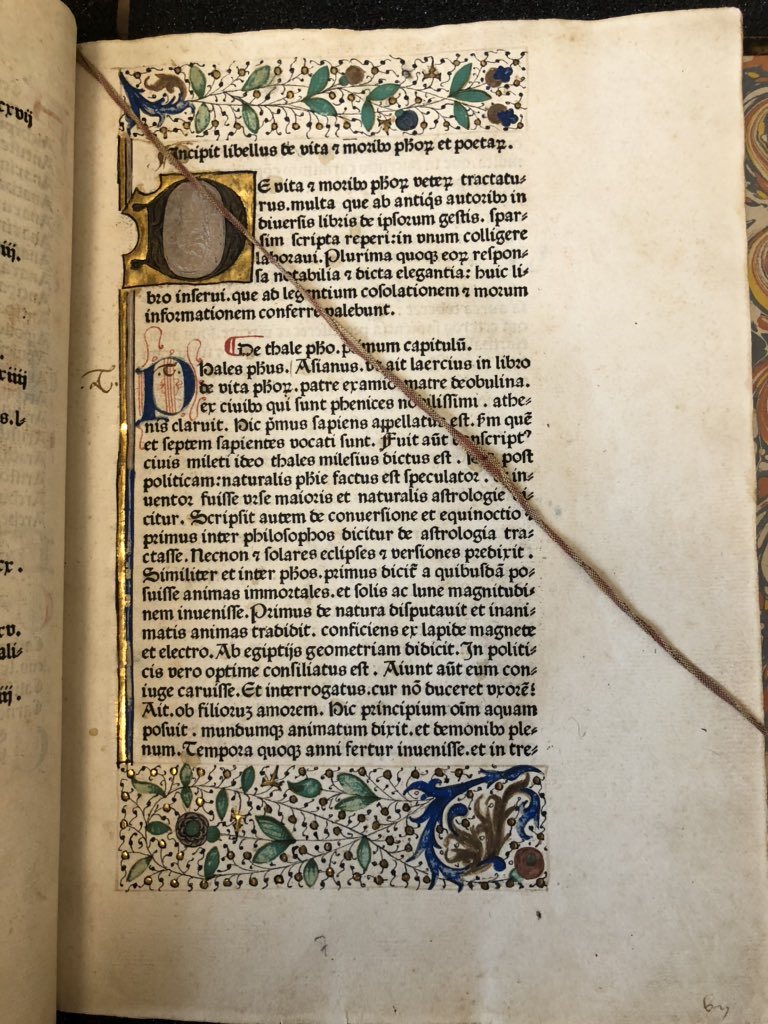 cxvij
iij.
xiiij
s.l⸗
cx.
xv.
ali⸗
iij.
Incipit libellus de vita ⁊ moribꝰ ph̄oꝝ et poetaꝝ.
DE vita ⁊ moribꝰ ph̄oꝝ veteꝝ tractatu⸗
rus.multa que ab antiq̄s autoribꝰ in
diversis libris de ipsorum gestis. spar⸗
sim scripta reperi:in vnum colligere
laboraui. Plurima quoqꝫ eoꝝ respon⸗
sa notabilia ⁊ dicta elegantia: huic li⸗
bro inserui.que ad legentium cōsolationem ⁊ morum
informationem conferre valebunt.
De thale ph̄o. primum capitulū.
.T. Thales ph̄us. Asianus. vt ait laercius in libro
.T. de vita ph̄oꝝ. patre examio matre deobulina.
ex ciuibꝰ qui sunt phenices nobilissimi . athe⸗
nis claruit. Hic p̄mus sapiens appellatus est. ẜm quē
et septem sapientes vocati sunt. Fuit aūt conscriptꝰ
ciuis mileti ideo thales milesius dictus est . post
politicam:naturalis ph̄ie factus est speculator . in⸗
uentor fuisse vrse maioris et naturalis astrologie di⸗
citur. Scripsit autem de conuersione et equinoctio ⁊
primus inter philosophos dicitur de astrologia tra⸗
ctasse. Necnon ⁊ solares eclipses ⁊ versiones predixit .
Similiter et inter ph̄os.primus dicit̄ a quibusdā po⸗
suisse animas immortales.et solis ac lune magnitudi⸗
nem inuenisse.Primus de natura disputauit et inani⸗
matis animas tradidit. conficiens ex lapide magnete
et electro. Ab egiptijs geometriam didicit. In politi⸗
cis vero optime consiliatus est . Aiunt aūt eum con⸗
iuge caruisse. Et interrogatus.cur nō duceret vxorē:
Ait.ob filioruꝫ amorem. Hic principium oīm aquam
posuit . mundumqꝫ animatum dixit.et demonibꝰ ple⸗
num. Tempora quoqꝫ anni fertur inuenisse.et in tre⸗